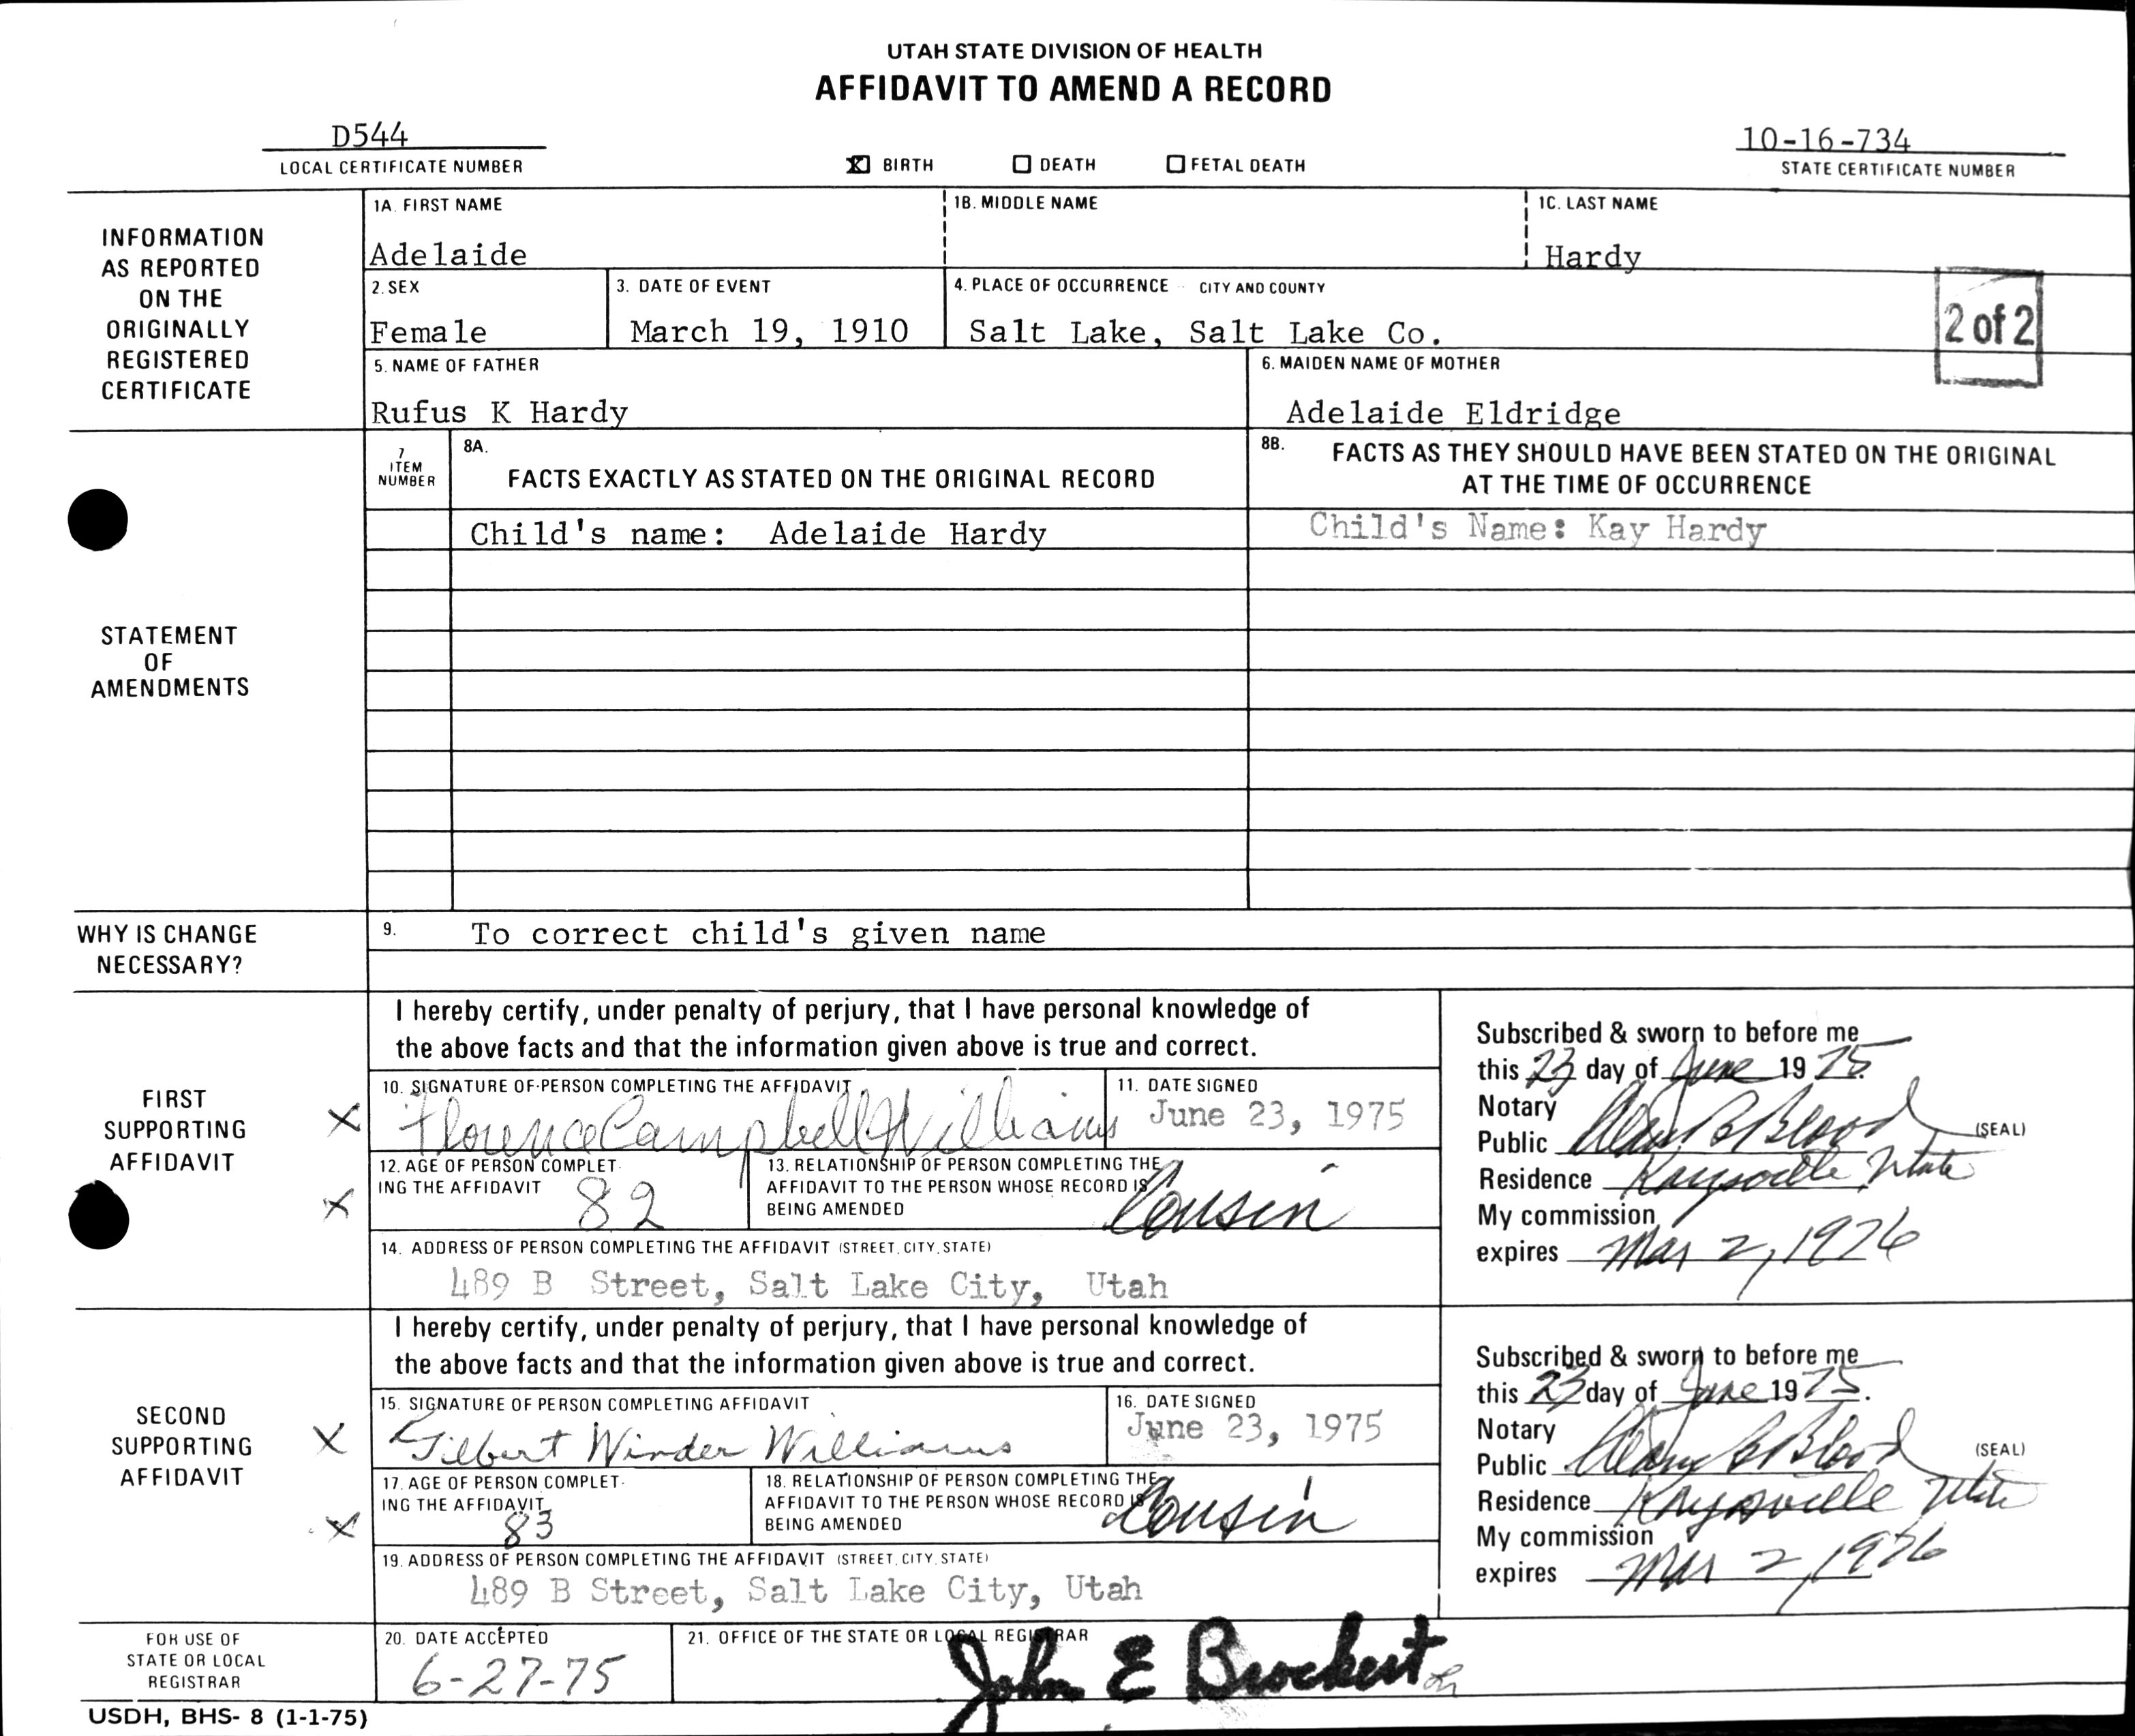 UTAH STATE DIVISION OF HEALTH
AFFIDAVIT TO AMEND A RECORD
D544
LOCAL CERTIFICATE NUMBER
X BIRTH DEATH FETAL DEATH
10-16-734
STATE CERTIFICATE NUMBER
INFORMATION
AS REPORTED
ON THE
ORIGINALLY
REGISTERED
CERTIFICATE
1A. FIRST NAME
Adelaide
1B. MIDDLE NAME
1C. LAST NAME
Hardy
2. SEX
Female
3. DATE OF EVENT
March 19, 1910
4. PLACE OF OCCURRENCE CITY AND COUNTY
Salt Lake, Salt Lake Co.
2 of 2
5. NAME OF FATHER
Rufus K Hardy
6. MAIDEN NAME OF MOTHER
Adelaide Eldridge
STATEMENT
OF
AMENDMENTS
7
ITEM
NUMBER
8A.
FACTS EXACTLY AS STATED ON THE ORIGINAL RECORD
8B. FACTS AS THEY SHOULD HAVE BEEN STATED ON THE ORIGINAL
AT THE TIME OF OCCURRENCE
Child's name: Adelaide Hardy
Child's Name: Kay Hardy
WHY IS CHANGE
NECESSARY?
9. To correct child's given name
FIRST
SUPPORTING
AFFIDAVIT
X
X
I hereby certify, under penalty of perjury, that I have personal knowledge of
the above facts and that the information given above is true and correct.
10. SIGNATURE OF PERSON COMPLETING THE AFFIDAVIT
Florence Campbell Williams
11. DATE SIGNED
June 23, 1975
12. AGE OF PERSON COMPLET-
ING THE AFFIDAVIT
82
13. RELATIONSHIP OF PERSON COMPLETING THE
AFFIDAVIT TO THE PERSON WHOSE RECORD IS
BEING AMENDED
Cousin
14. ADDRESS OF PERSON COMPLETING THE AFFIDAVIT (STREET, CITY, STATE)
489 B Street, Salt Lake City, Utah
Subscribed & sworn to before me
this 23 day of June 1975.
Notary
Public Blood (SEAL)
Residence Kaysville Utah
My commission
expires Mar 2, 1976
SECOND
SUPPORTING
AFFIDAVIT
X
X
I hereby certify, under penalty of perjury, that I have personal knowledge of
the above facts and that the information given above is true and correct.
15. SIGNATURE OF PERSON COMPLETING AFFIDAVIT
Gilbert Winder Williams
16. DATE SIGNED
June 23, 1975
17. AGE OF PERSON COMPLET-
ING THE AFFIDAVIT
83
18. RELATIONSHIP OF PERSON COMPLETING THE
AFFIDAVIT TO THE PERSON WHOSE RECORD IS
BEING AMENDED
Cousin
19. ADDRESS OF PERSON COMPLETING THE AFFIDAVIT (STREET, CITY, STATE)
489 B Street, Salt Lake City, Utah
Subscribed & sworn to before me
this 23 day of June 1975.
Notary
Public Blood (SEAL)
Residence Kaysville Utah
My commission
expires Mar 2, 1976
FOR USE OF
STATE OR LOCAL
REGISTRAR
20. DATE ACCEPTED
6-27-75
21. OFFICE OF THE STATE OR LOCAL REGISTRAR
John E Brockert
USDH, BHS- 8 (1-1-75)